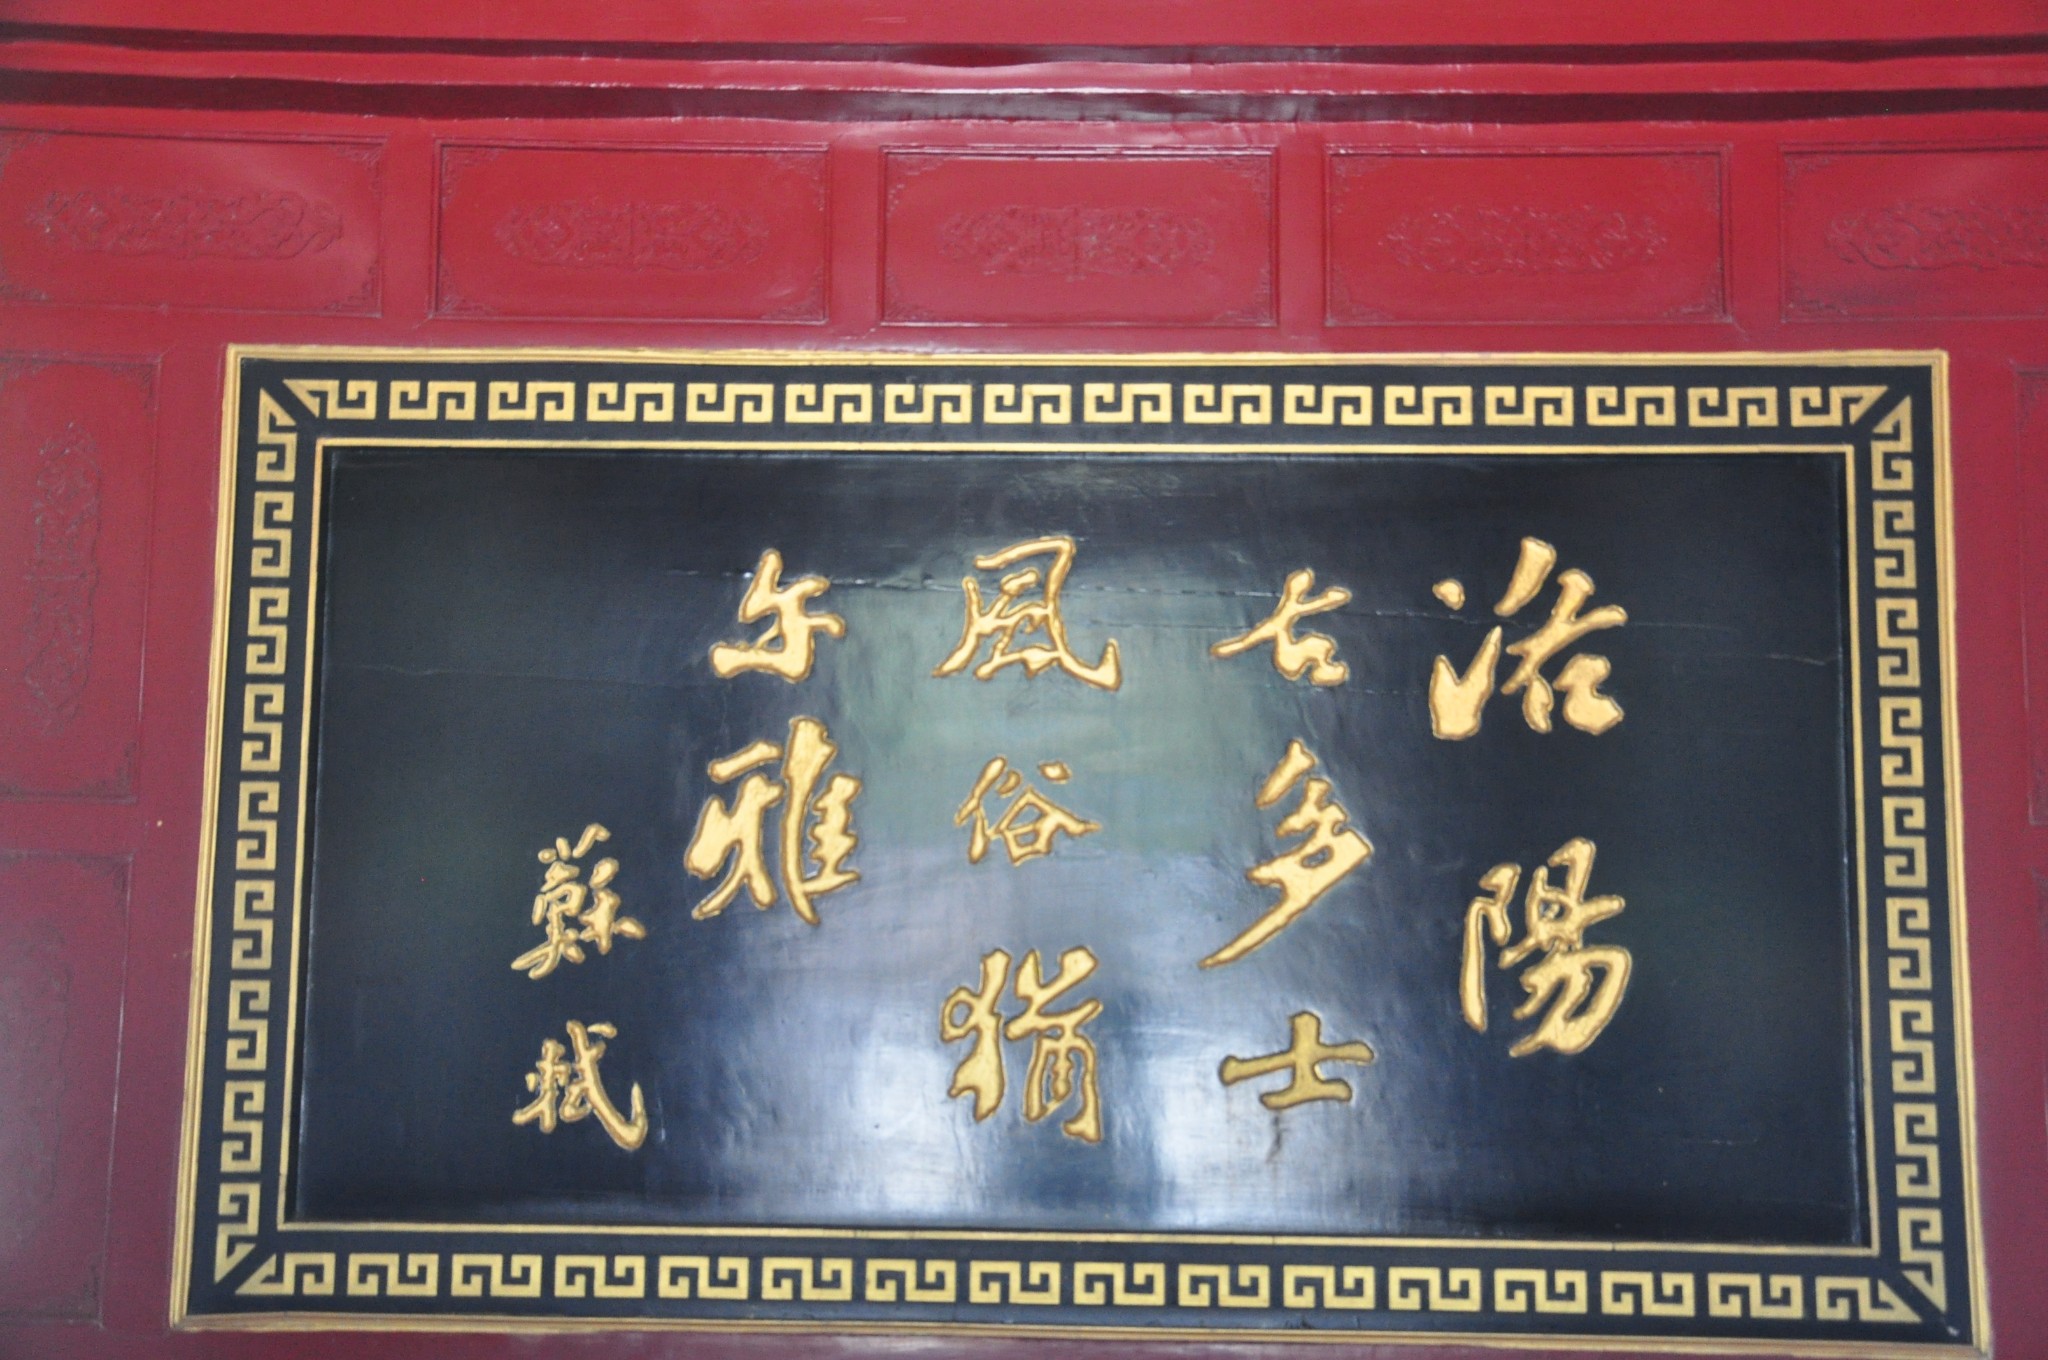 洛陽
古多士
風俗猶
尔雅
蘇軾